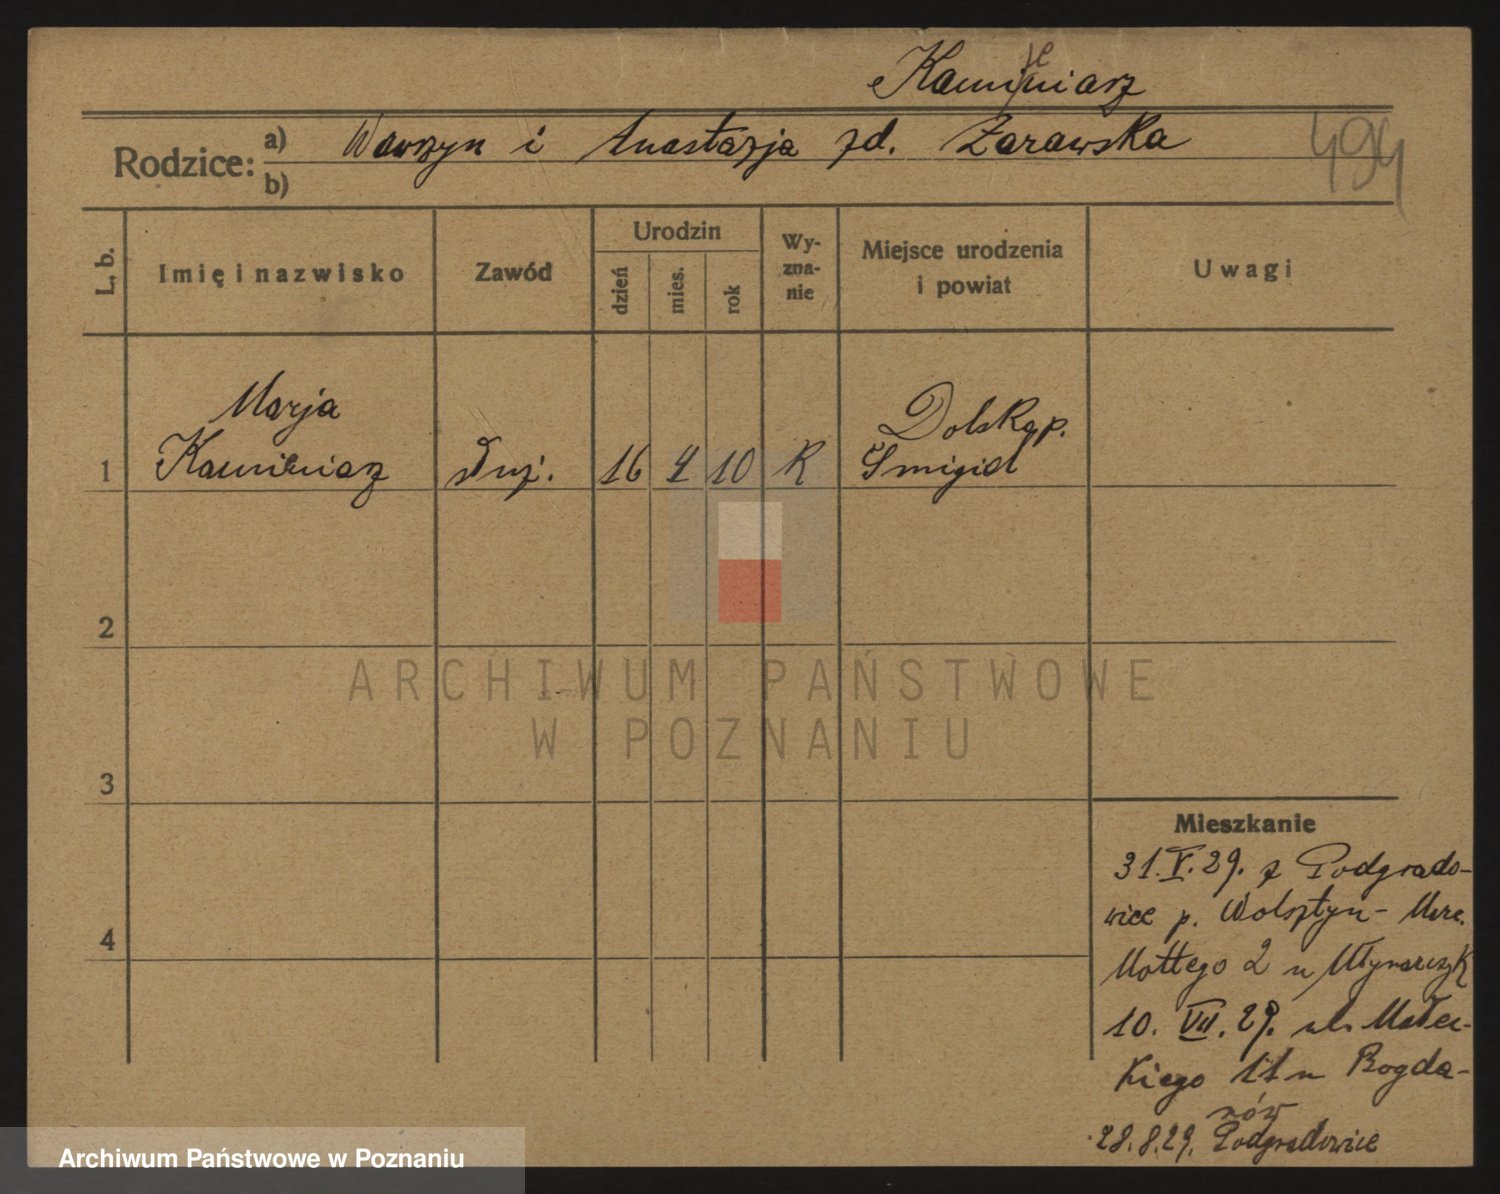 Kamieniarz
Rodzice: a) Wawrzyn i Anastazja zd. Żarawska
b)
494
L. b.
Imię i nazwisko
Zawód
Urodzin
dzień
mies.
rok
Wy-
zna-
nie
Miejsce urodzenia
i powiat
Uwagi
Marja
1 Kamieniarz służ. 16 4 10 K
Dolsk p.
Śmigiel
2
3
4
ARCHIWUM PAŃSTWOWE
W POZNANIU
Mieszkanie
31.V.29. z Podgrado-
wice p. Wolsztyn - Marc.
Mottego 2 u Młynarczyk
10. VII. 29. ul. Małec-
kiego 11 u Bogda-
nów
28.8.29. Podgradowice
Archiwum Państwowe w Poznaniu